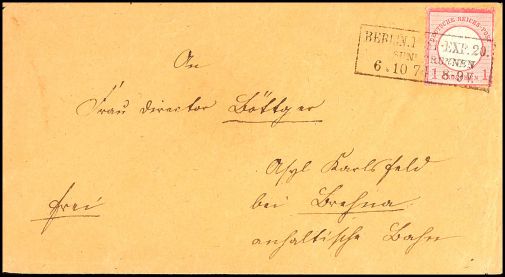 BERLIN, P EXP. 20.
6. 10 7 18. 9 V.
DEUTSCHE REICHS-POST
1
An
Frau Director Böttger
Asyl Karlsfeld
frei
bei Brehna
anhaltische Bahn